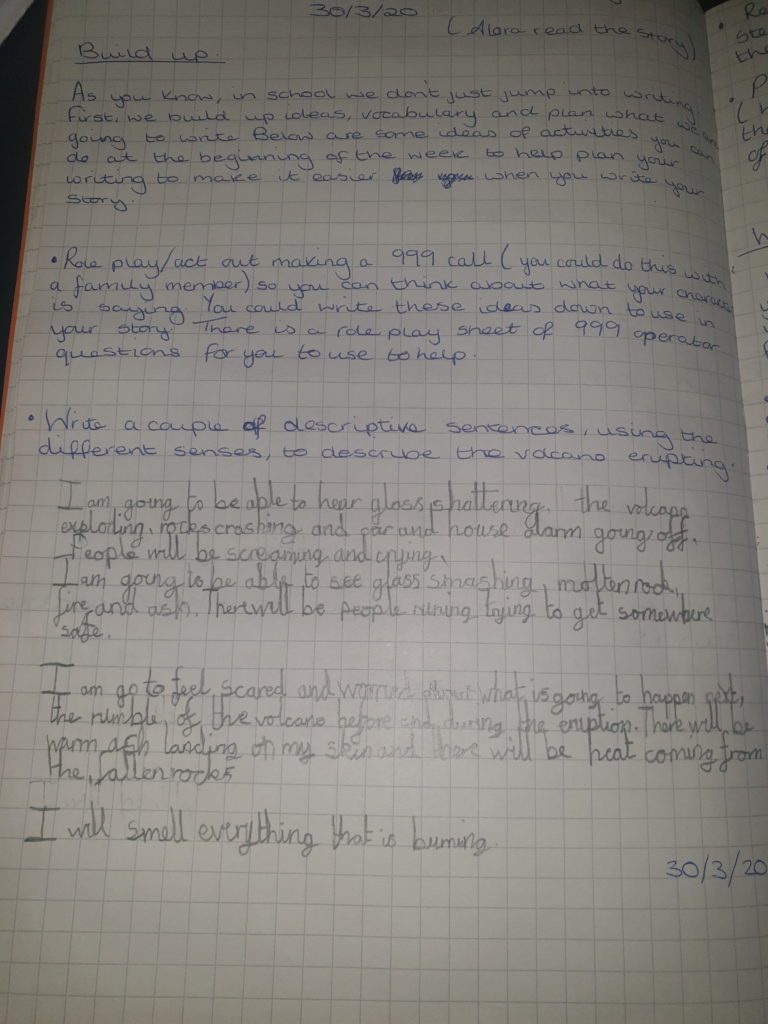 30/3/20
(Alora read the story)
Build up.
As you know, in school we don't just jump into writing.
First, we build up ideas, vocabulary and plan what we are
going to write Below are some ideas of activities you can
do at the beginning of the week to help plan your
writing to make it easier when you write your
story.
• Role play/act out making a 999 call (you could do this with
a family member) so you can think about what your character
is saying. You could write these ideas down to use in
your story. There is a role play sheet of 999 operator
questions for you to use to help.
• Write a couple of descriptive sentences, using the
different senses, to describe the volcano erupting.
I am going to be able to hear glass shattering, the volcano
exploding, rocks crashing and car and house alarm going off.
People will be screaming and crying.
I am going to be able to see glass smashing, molten rock,
fire and ash. There will be people runing trying to get somewhere
safe.
I am go to feel scared and worried about what is going to happen next,
the rumble of the volcano before and during the eruption. There will be
warm ash landing on my skin and there will be heat coming from
the fallen rocks
I will smell everything that is burning.
30/3/20